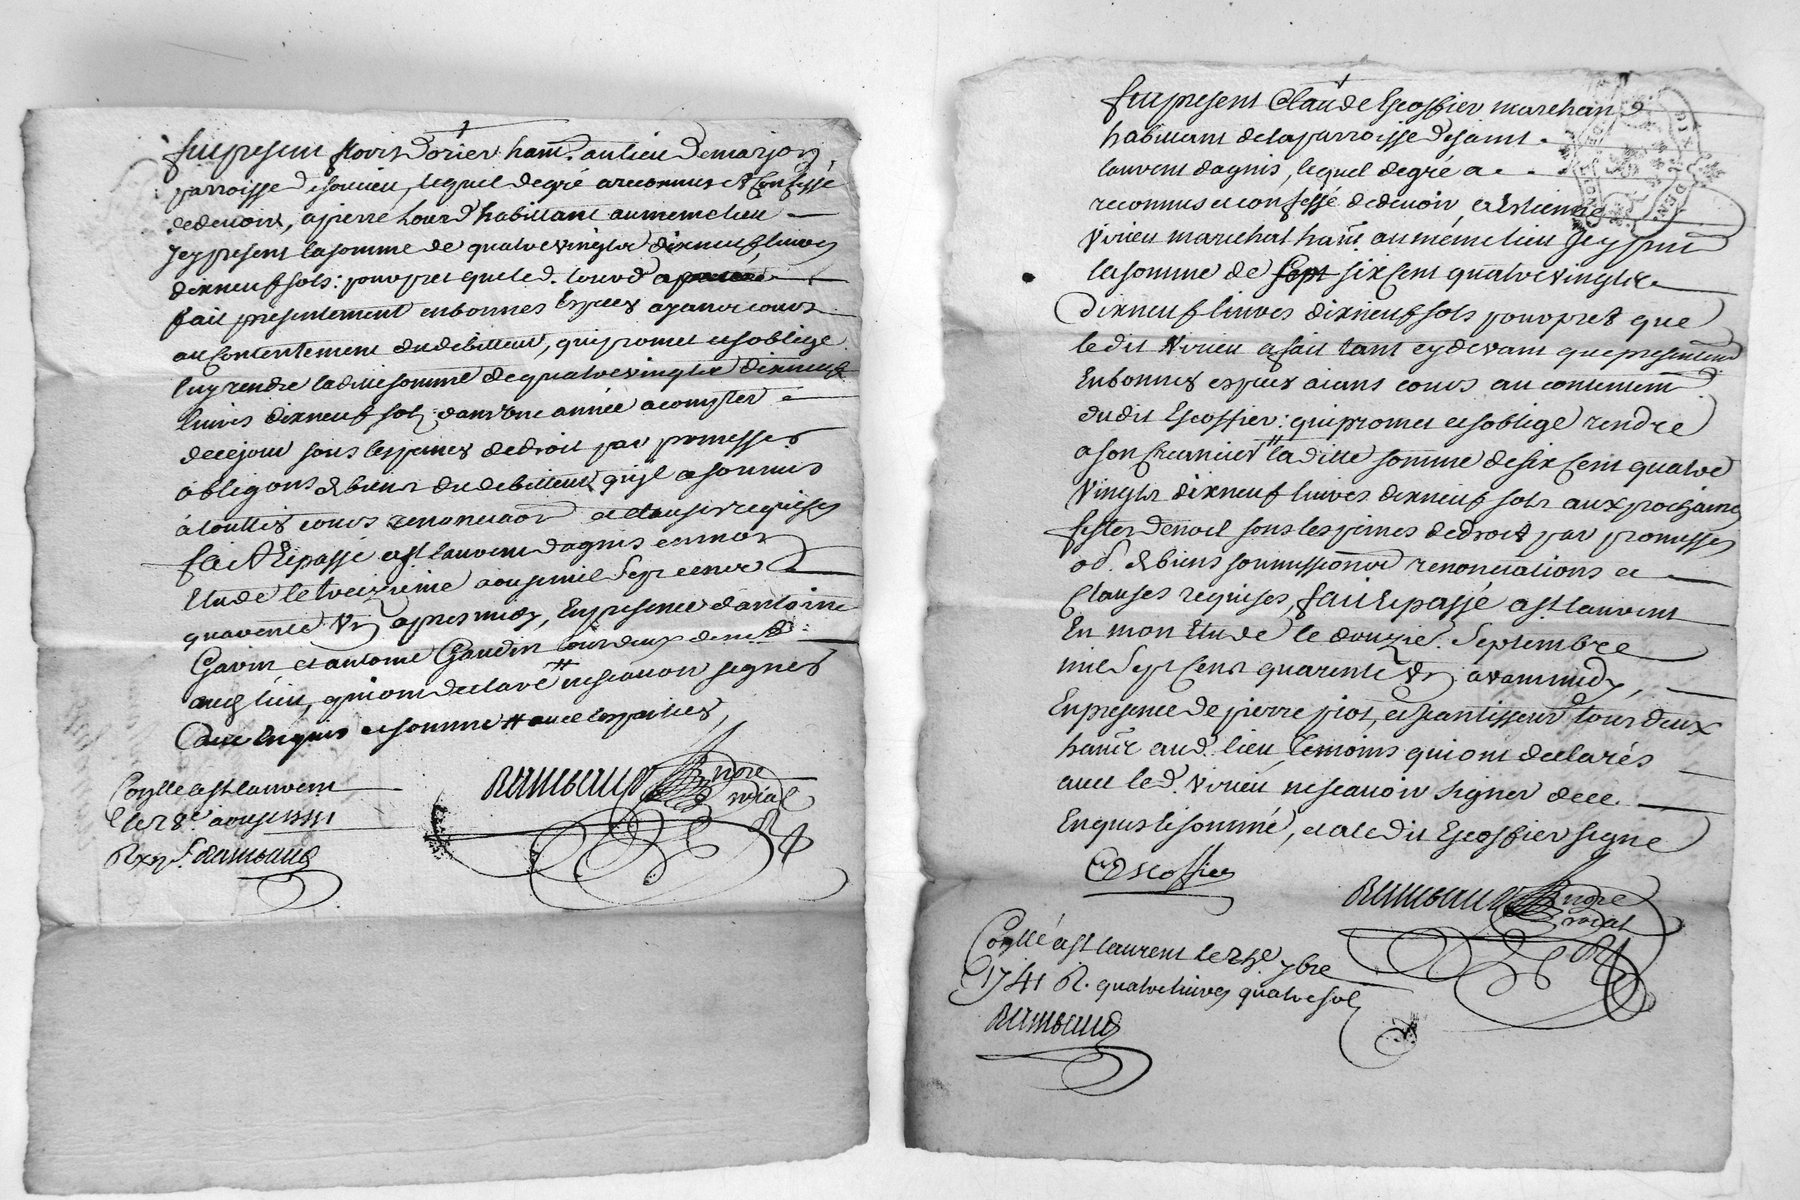 fut present floris dorier hant. au lieu de marjon
parroisse de soucieu, lequel de gré a reconnus et Confessé
de devoir, a pierre Lourd habittant au meme lieu
Icy present la somme de quatre vingts dix neuf livres
dix neuf sols: pour pret que led. Lourd a
fait presentement en bonnes Especes ayants cours
au Contentement du debitteur, qui promet et soblige
luy rendre laditte somme de quatre vingts dix neuf
livres dix neuf sols; dans Une année a compter
de ce jour sous les peines de droit par promesses
obligaons & biens du debitteur quil a soumis
à touttes cours renonciaon et clauses requises
fait & passé a st. laurent dagnis en mon
Etude le treizieme aoust mil Sept cents
quarente Un apres midy, En presence dantoine
Gavin et antoine Gaudin tous deux dem.
aud. lieu, qui ont declaré # ne scavoir signer
de ce Enquis et sommé # avec les parties,
Conllé a st laurent
le 28e. aoust 1741
R. Rambaud
Rambaud nore
roial
fut present Claude Escoffier marchand
habittant de la parroisse de saint
laurent dagnis, lequel de gré a
reconnus et confessé de devoir, a Estienne
Virieu marechal hant. au méme lieu Icy pnt
la somme de sept six cent quatre vingts
dix neuf livres dix neuf sols pour pret que
le dit Virieu a fait tant cy devant que presentement
En bonnes especes aiants cours au contentement
du dit Escoffier: qui promet et soblige rendre
a son Creancier # la ditte somme de six Cent quatre
Vingts dix neuf livres dix neuf sols aux prochaines
festes de noel sous les peines de droit par promesses
ob. & biens soumissions renonciations et
Clauses requises, fait & passé a st. laurent
En mon Etude le douzie. Septembre
mil Sept Cent quarente Un avant midy,
En presence de pierre piot, et tous deux
hants aud. lieu temoins qui ont declarés
avec led. Virieu ne scavoir signer de ce
Enquis & sommé, et a le dit Escoffier signé
C Escoffier
Rambaud nore
roial
Conllé a st laurent le 24e. 7bre
1741 R. quatre livres quatre sols
Rambaud